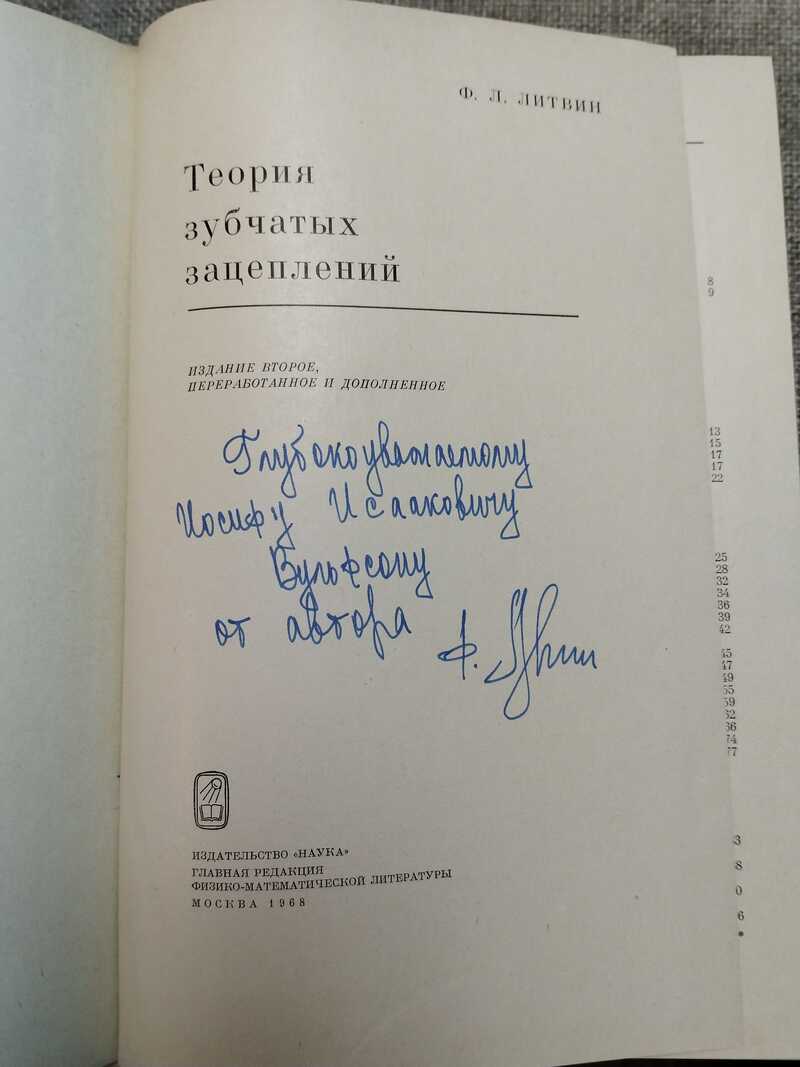 Ф. Л. ЛИТВИН
Теория
зубчатых
зацеплений
ИЗДАНИЕ ВТОРОЕ,
ПЕРЕРАБОТАННОЕ И ДОПОЛНЕННОЕ
Глубокоуважаемому
Иосифу Исааковичу
Вульфсону
от автора
Ф.
ИЗДАТЕЛЬСТВО «НАУКА»
ГЛАВНАЯ РЕДАКЦИЯ
ФИЗИКО-МАТЕМАТИЧЕСКОЙ ЛИТЕРАТУРЫ
МОСКВА 1968
8
9
13
15
17
17
22
25
28
32
34
36
39
42